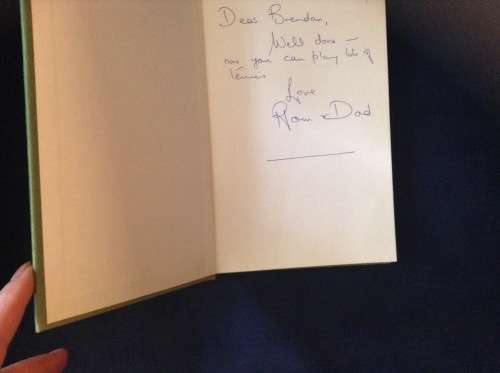 Dear Brendan,
Well done –
now you can play lots of
tennis
Love
Mum + Dad.